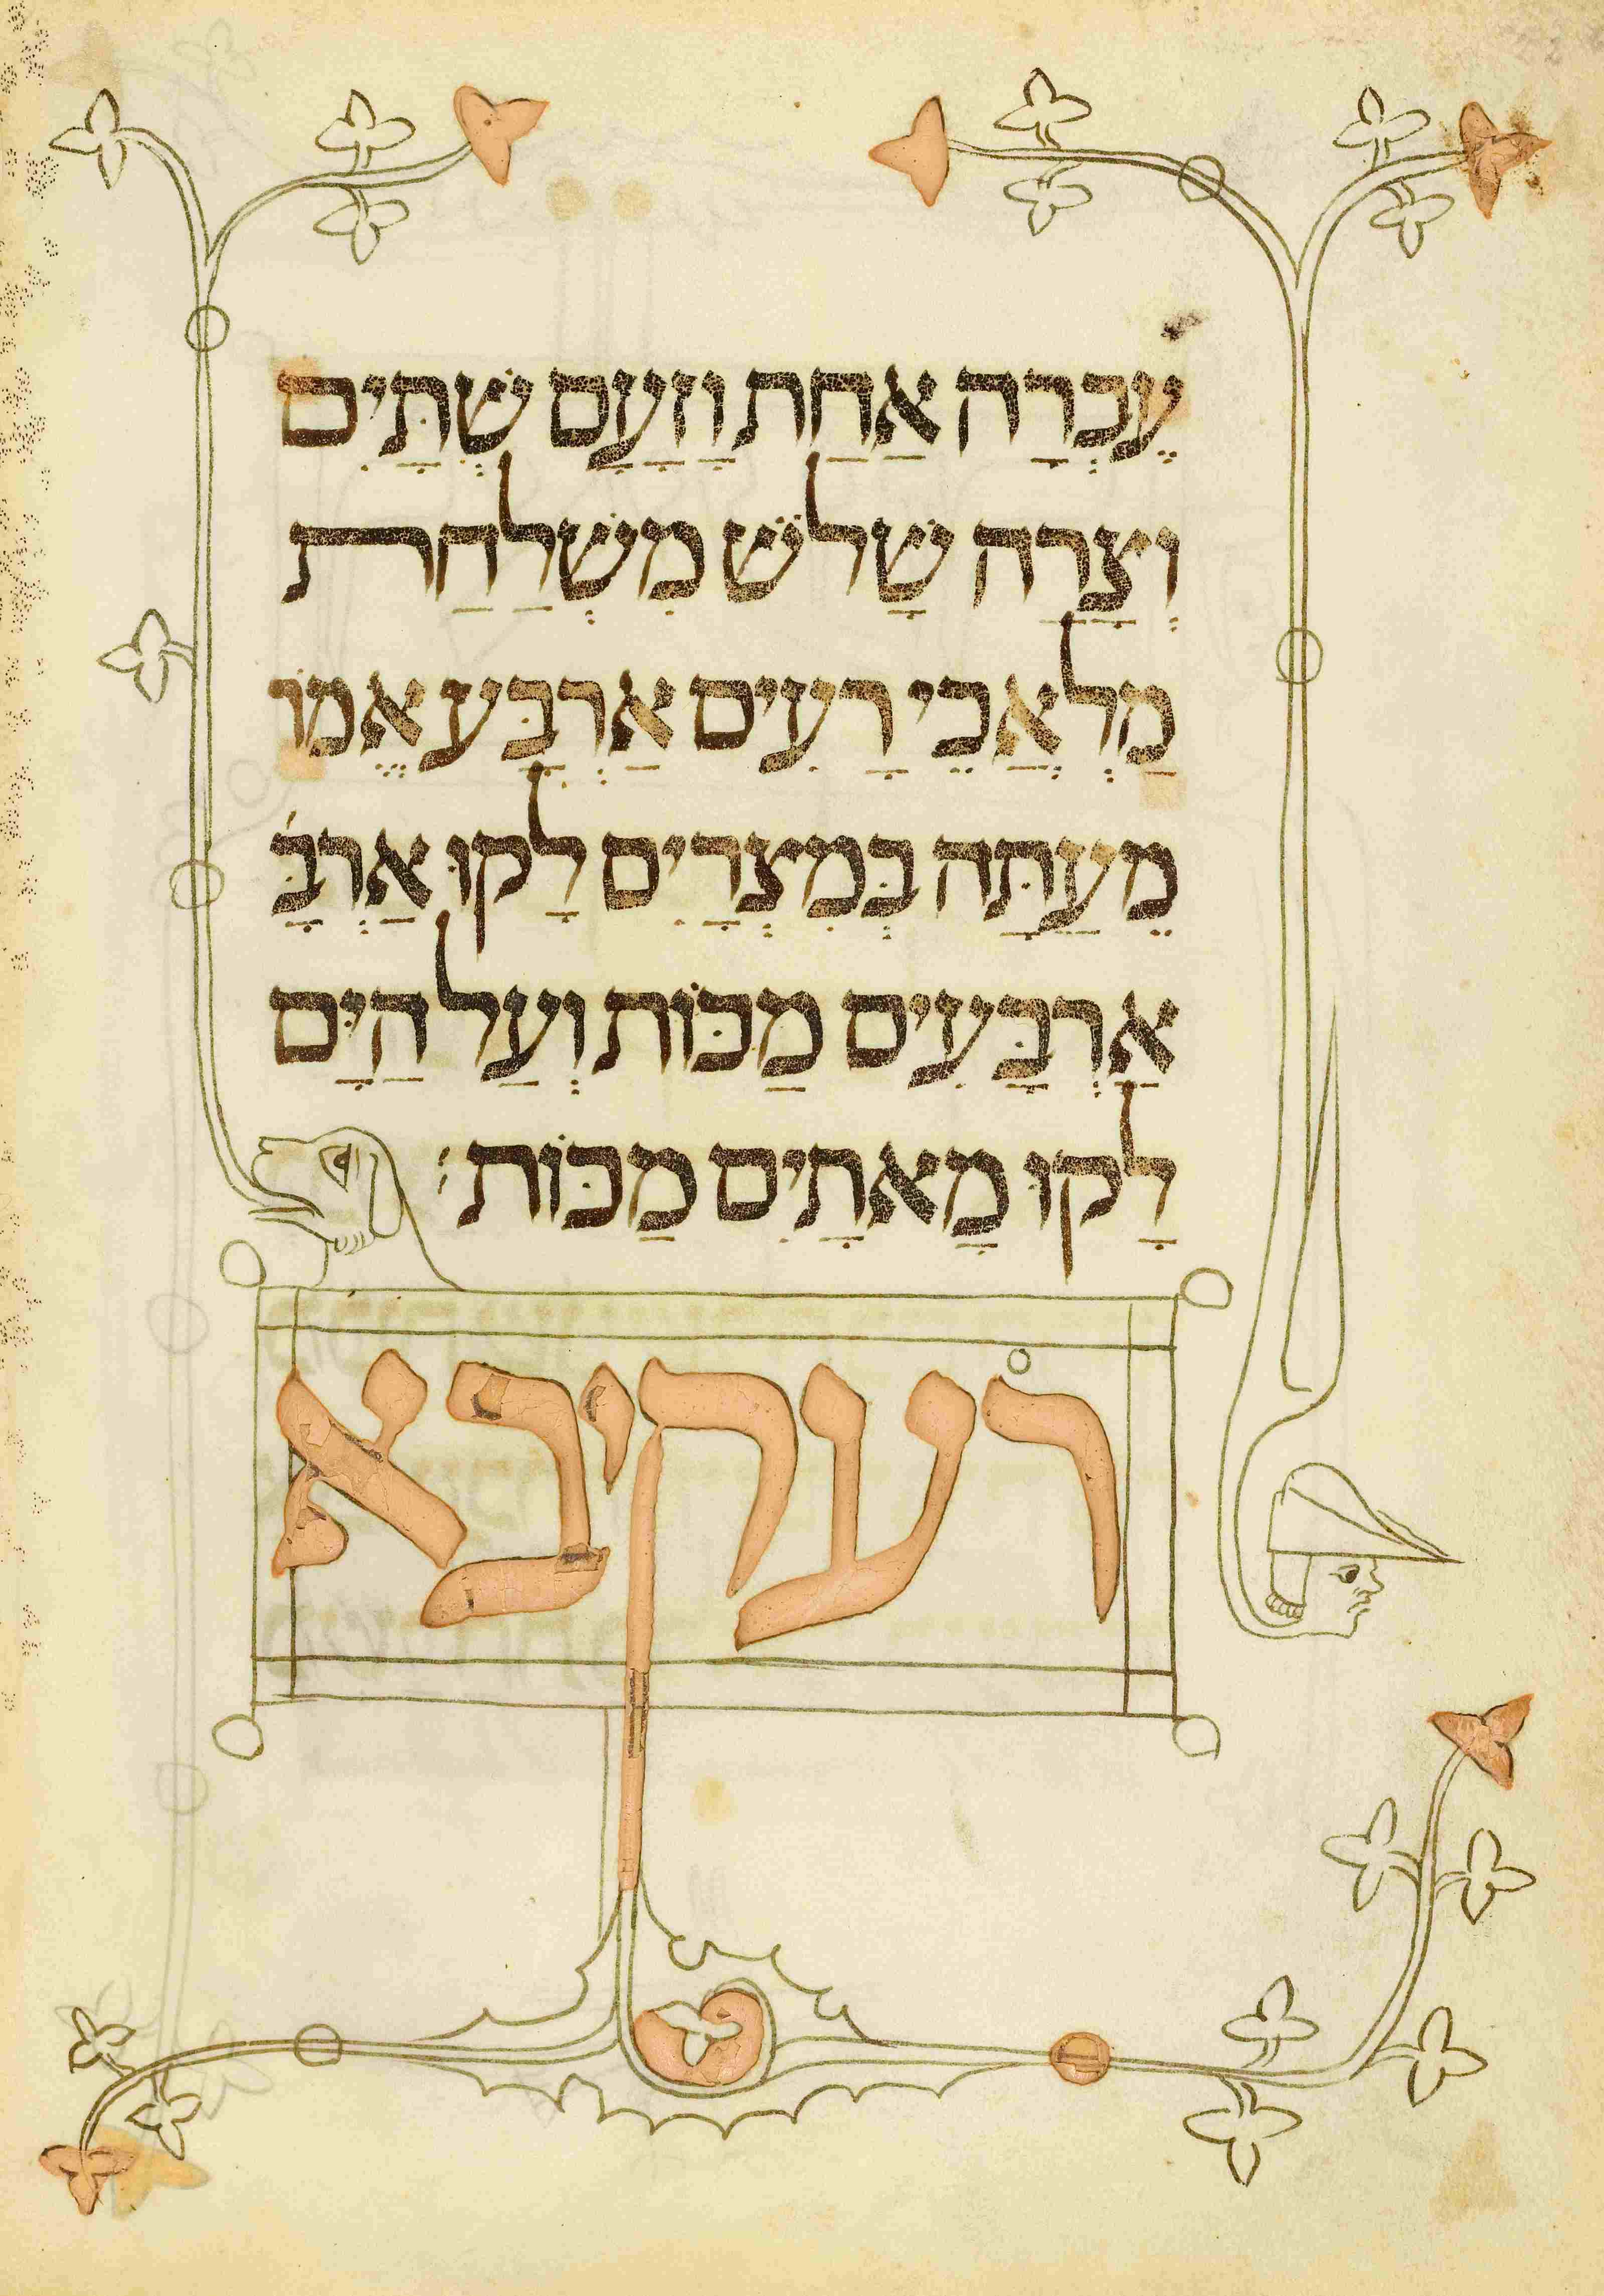 עֶבְרָה אַחַת וָזַעַם שְׁתַּיִם
וְצָרָה שָׁלֹשׁ מִשְׁלַחַת
מַלְאֲכֵי רָעִים אַרְבַּע אֱמוֹ
מֵעַתָּה בְּמִצְרַיִם לָקוּ אַרְבָּ
אַרְבָּעִים מַכּוֹת וְעַל הַיָּם
לָקוּ מָאתַיִם מַכּוֹת׃
רעקיבא